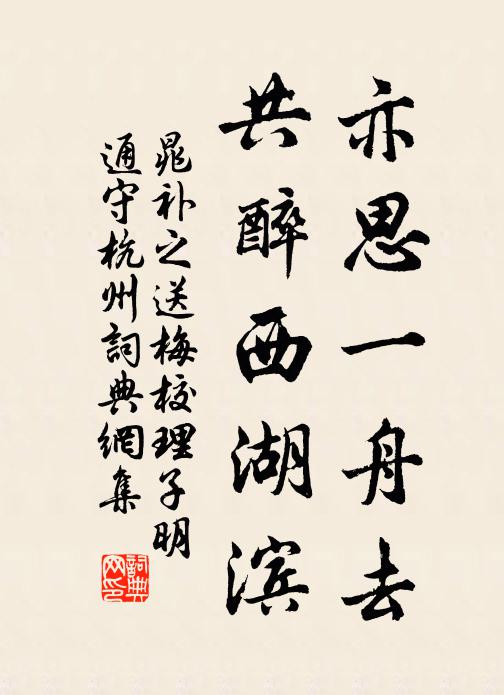 亦思一舟去
共醉西湖滨
晁补之送梅校理子明
通守杭州詞典網集
詞典
网印